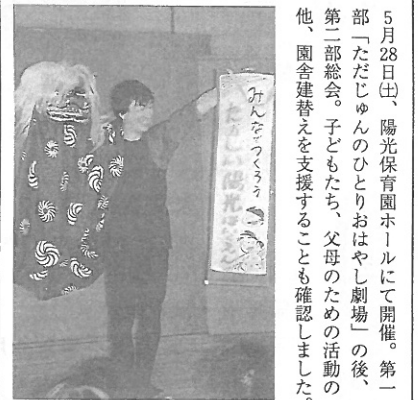 5月28日㈯、陽光保育園ホールにて開催。第一
部「ただじゅんのひとりおはやし劇場」の後、
第二部総会。子どもたち、父母のための活動の
他、園舎建替えを支援することも確認しました。
みんなでつくろう
たのしい陽光ほいくえん